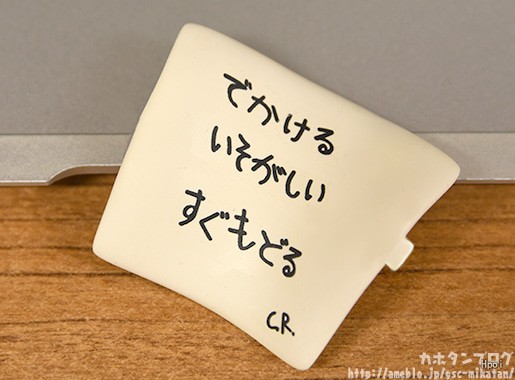 でかける
いそがしい
すぐもどる
C.R.
カホタンブログ
Hpoi
http://ameblo.jp/gsc-mikatan/